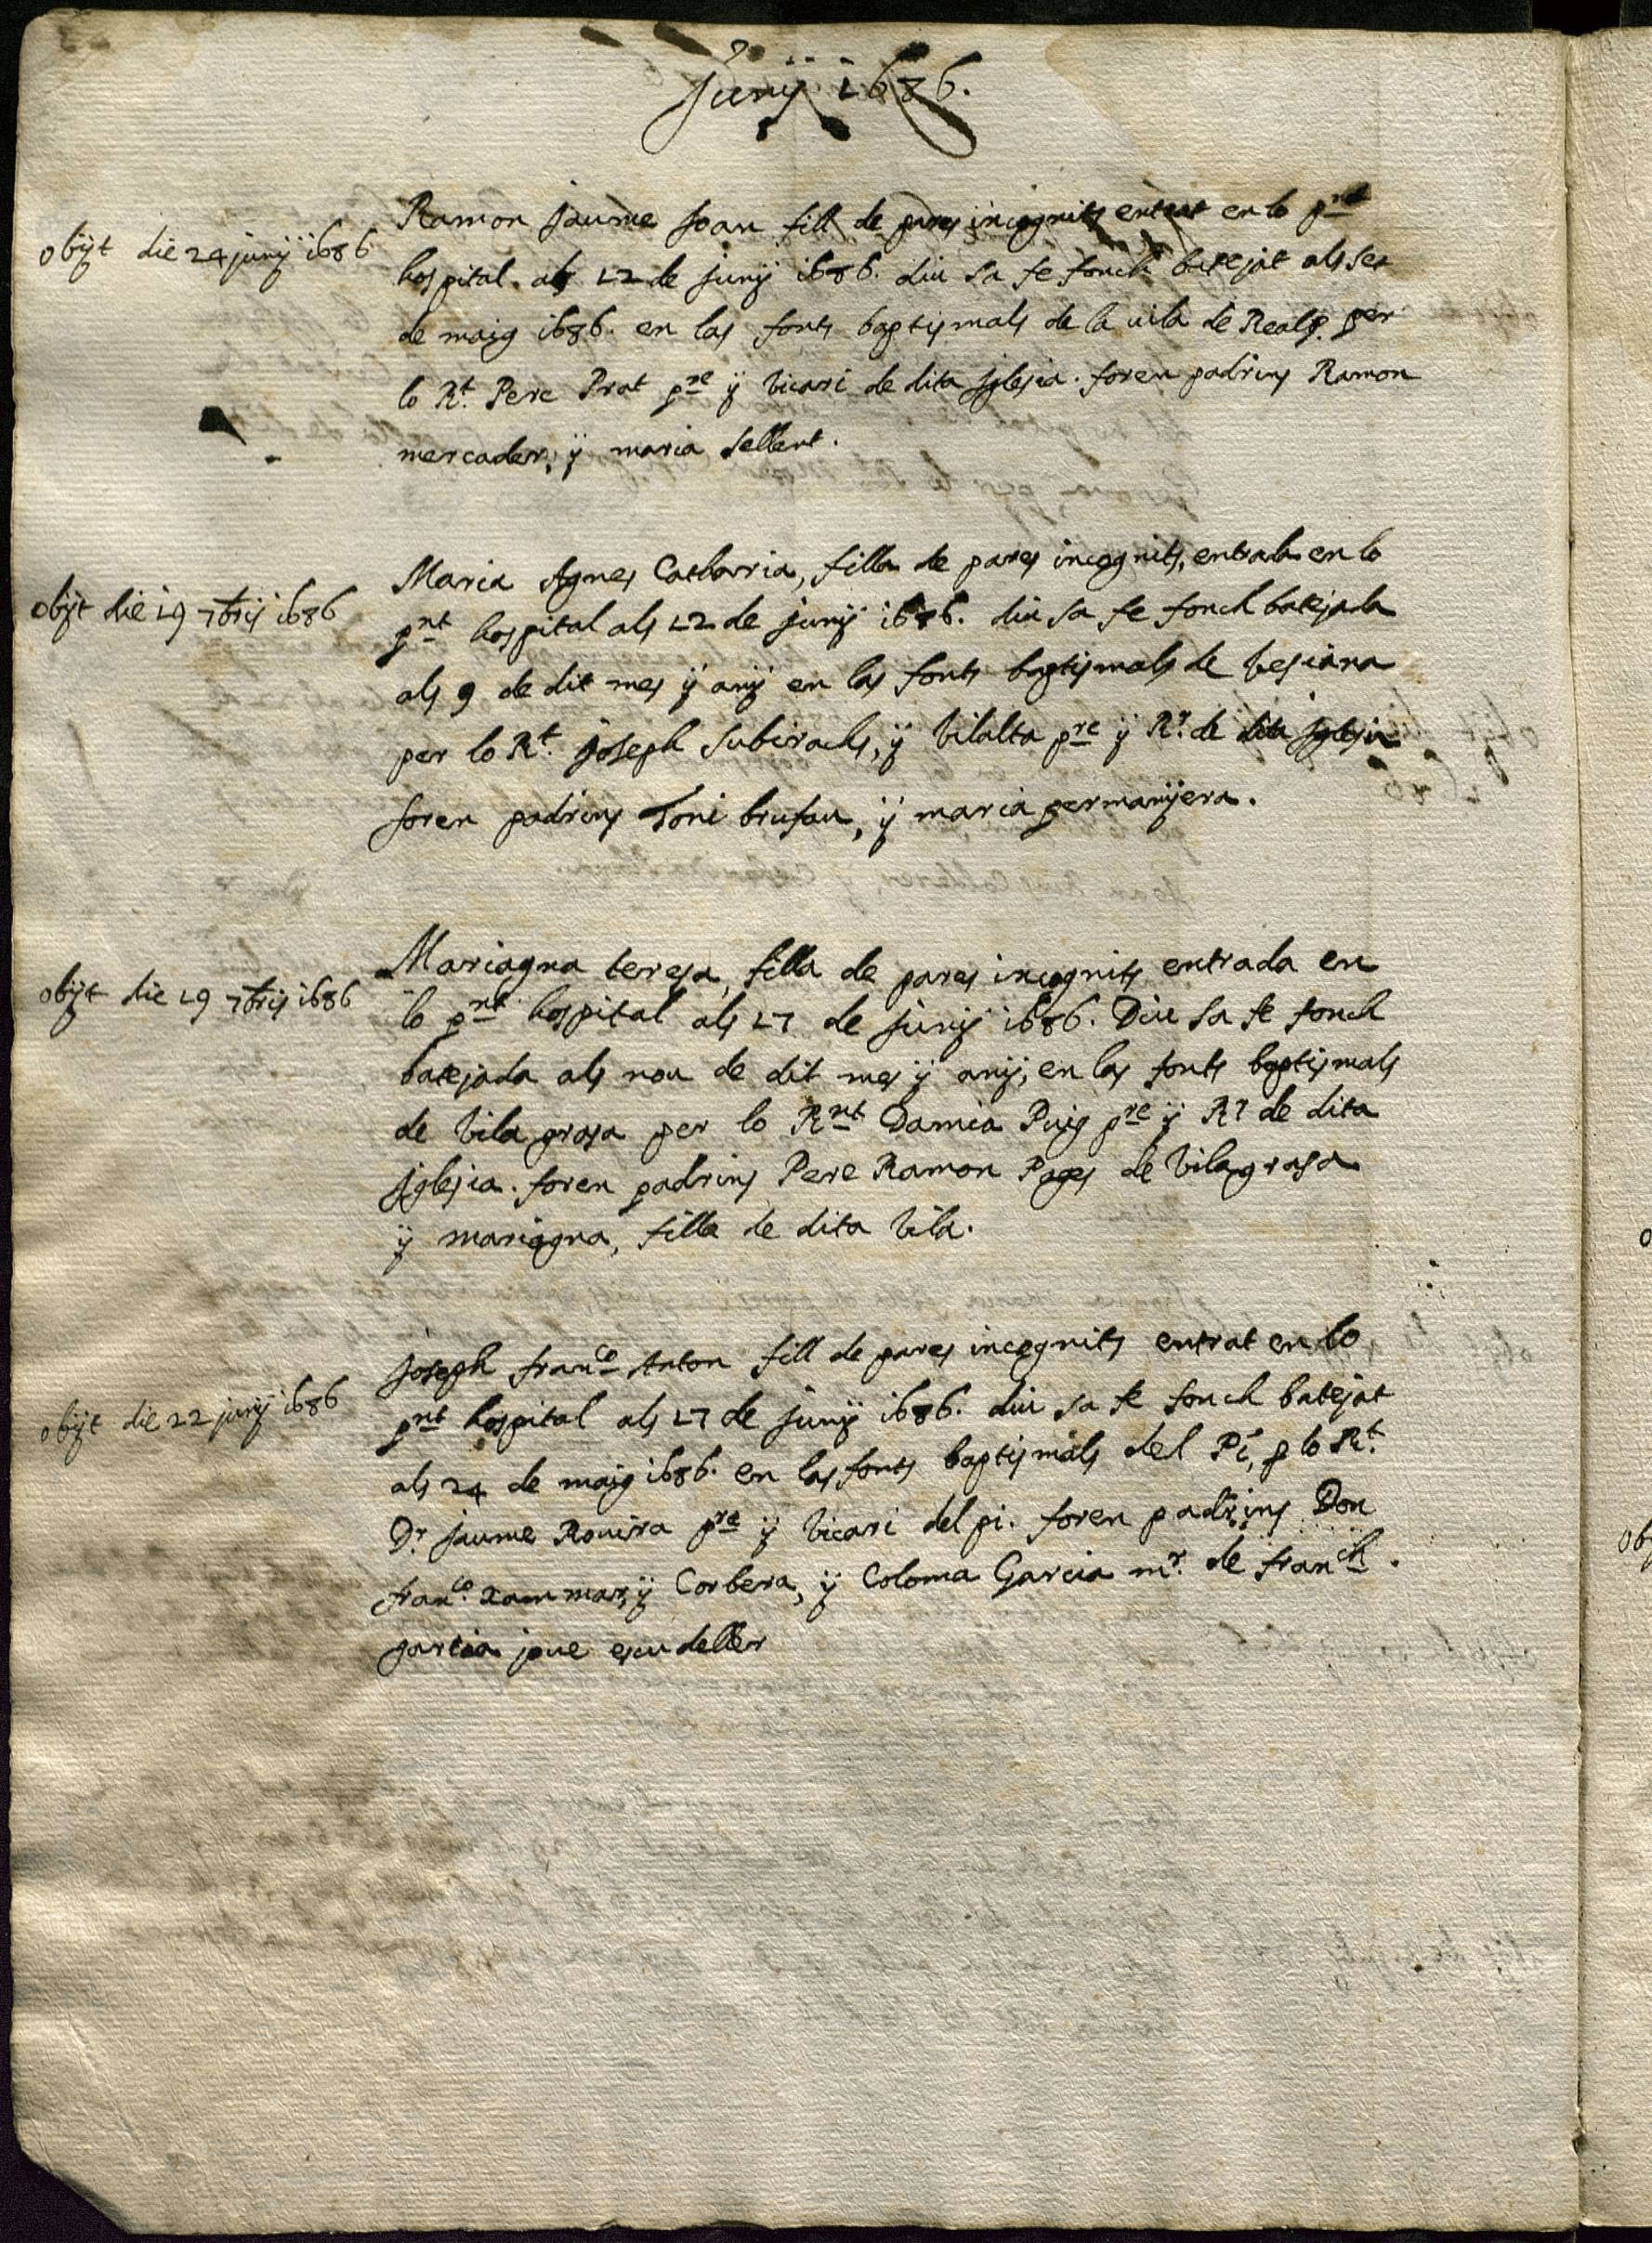 Junÿ 1686.
obijt die 24 junÿ 1686
Ramon jaume Joan fill de pares incognits entrat en lo pnt
hospital als 12 de junÿ 1686. diu sa fe fonch batejat als
de maig 1686. en las fonts baptismals de la vila de Realp. per
lo Rt. Pere Prat pre ÿ vicari de dita Jglesia. foren padrins Ramon
mercader, ÿ maria sellent.
obijt die 19 7bris 1686
Maria Agnes Catharria, filla de pares incognits, entrada en lo
pnt hospital als 12 de junÿ 1686. diu sa fe fonch batejada
als 9 de dit mes ÿ anÿ en las fonts baptismals de Vesiana
per lo Rt. joseph Subirachs, ÿ Vilalta pre ÿ Rr. de dita Jglesia
foren padrins Toni brufau, ÿ maria germanÿera.
obijt die 19 7bris 1686
Mariagna teresa, filla de pares incognits entrada en
lo pnt hospital als 17 de junÿ 1686. Diu sa fe fonch
batejada als nou de dit mes ÿ anÿ, en las fonts baptismals
de Vila grasa per lo Rnt Damia Puig pre ÿ Rr de dita
Jglesia. foren padrins Pere Ramon Pages de Vilagrasa
ÿ mariagna, filla de dita Vila.
obijt die 22 junÿ 1686
Joseph franco Anton fill de pares incognits entrat en lo
pnt hospital als 17 de junÿ 1686. diu sa fe fonch batejat
als 24 de maig 1686. en las fonts baptismals del Pi, p lo Rt.
Dr jaume Rovira pre ÿ vicari del pi. foren padrins Don
franco. xammar, ÿ Corbera, ÿ Coloma Garcia mr. de franch.
garcia jove escudeller